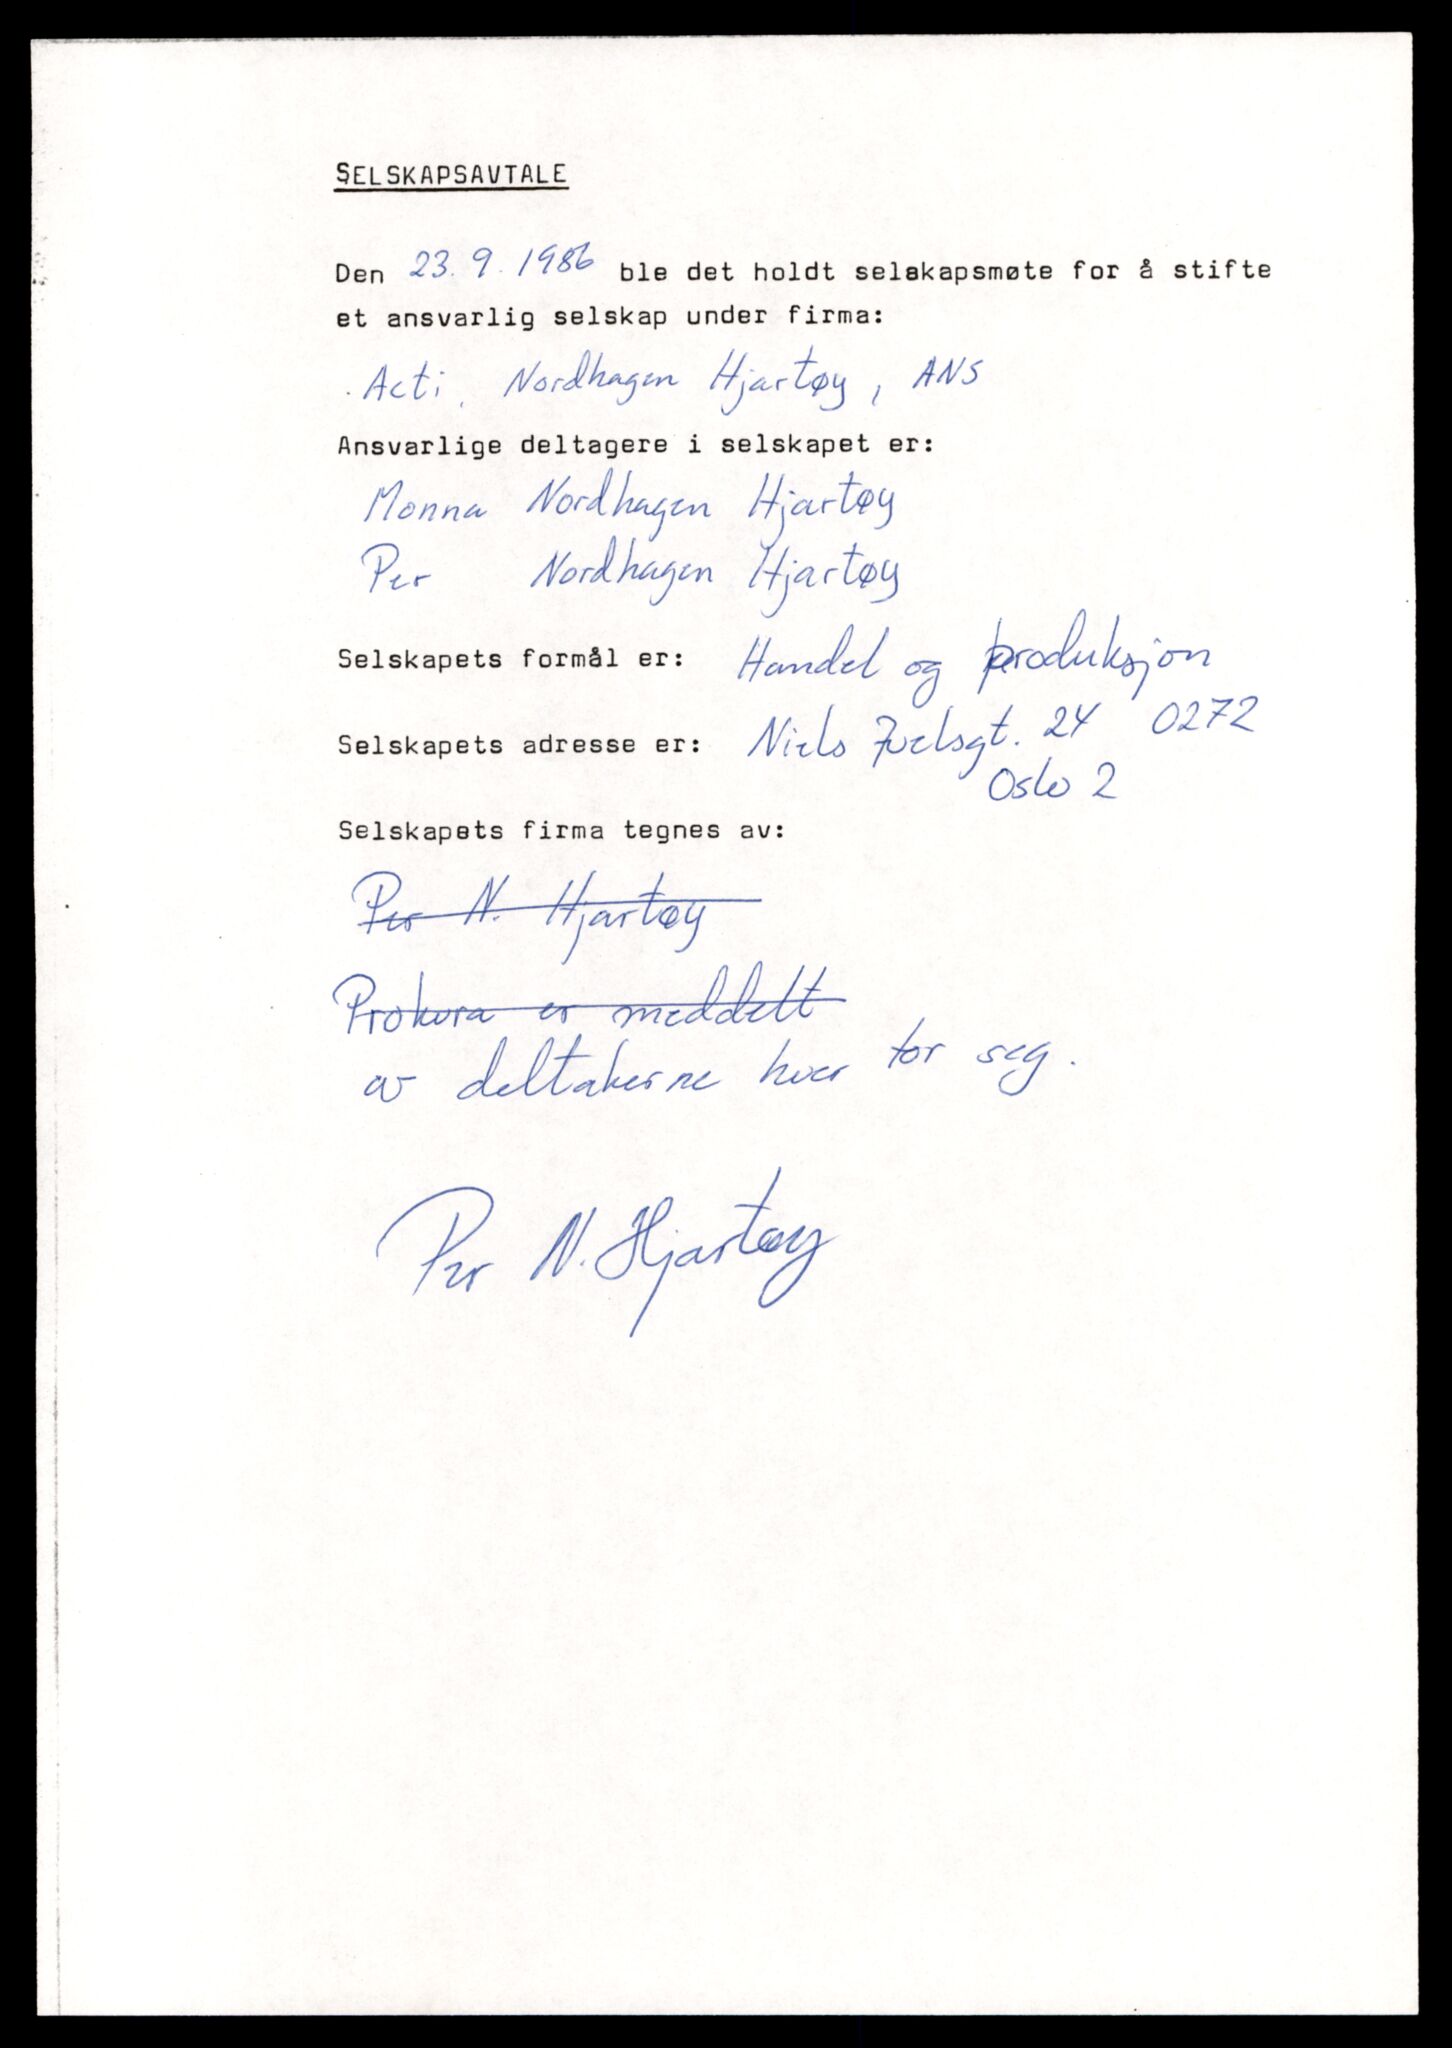 SELSKAPSAVTALE
Den 23.9.1986 ble det holdt selskapsmøte for å stifte
et ansvarlig selskap under firma:
Acti, Nordhagen Hjartøy, ANS
Ansvarlige deltagere i selskapet er:
Monna Nordhagen Hjartøy
Per Nordhagen Hjartøy
Selskapets formål er: Handel og produksjon
Selskapets adresse er: Niels Juelsgt. 24 0272
Oslo 2
Selskapets firma tegnes av:
Per N. Hjartøy
Prokura er meddelt
av deltakerne hver for seg.
Per N. Hjartøy